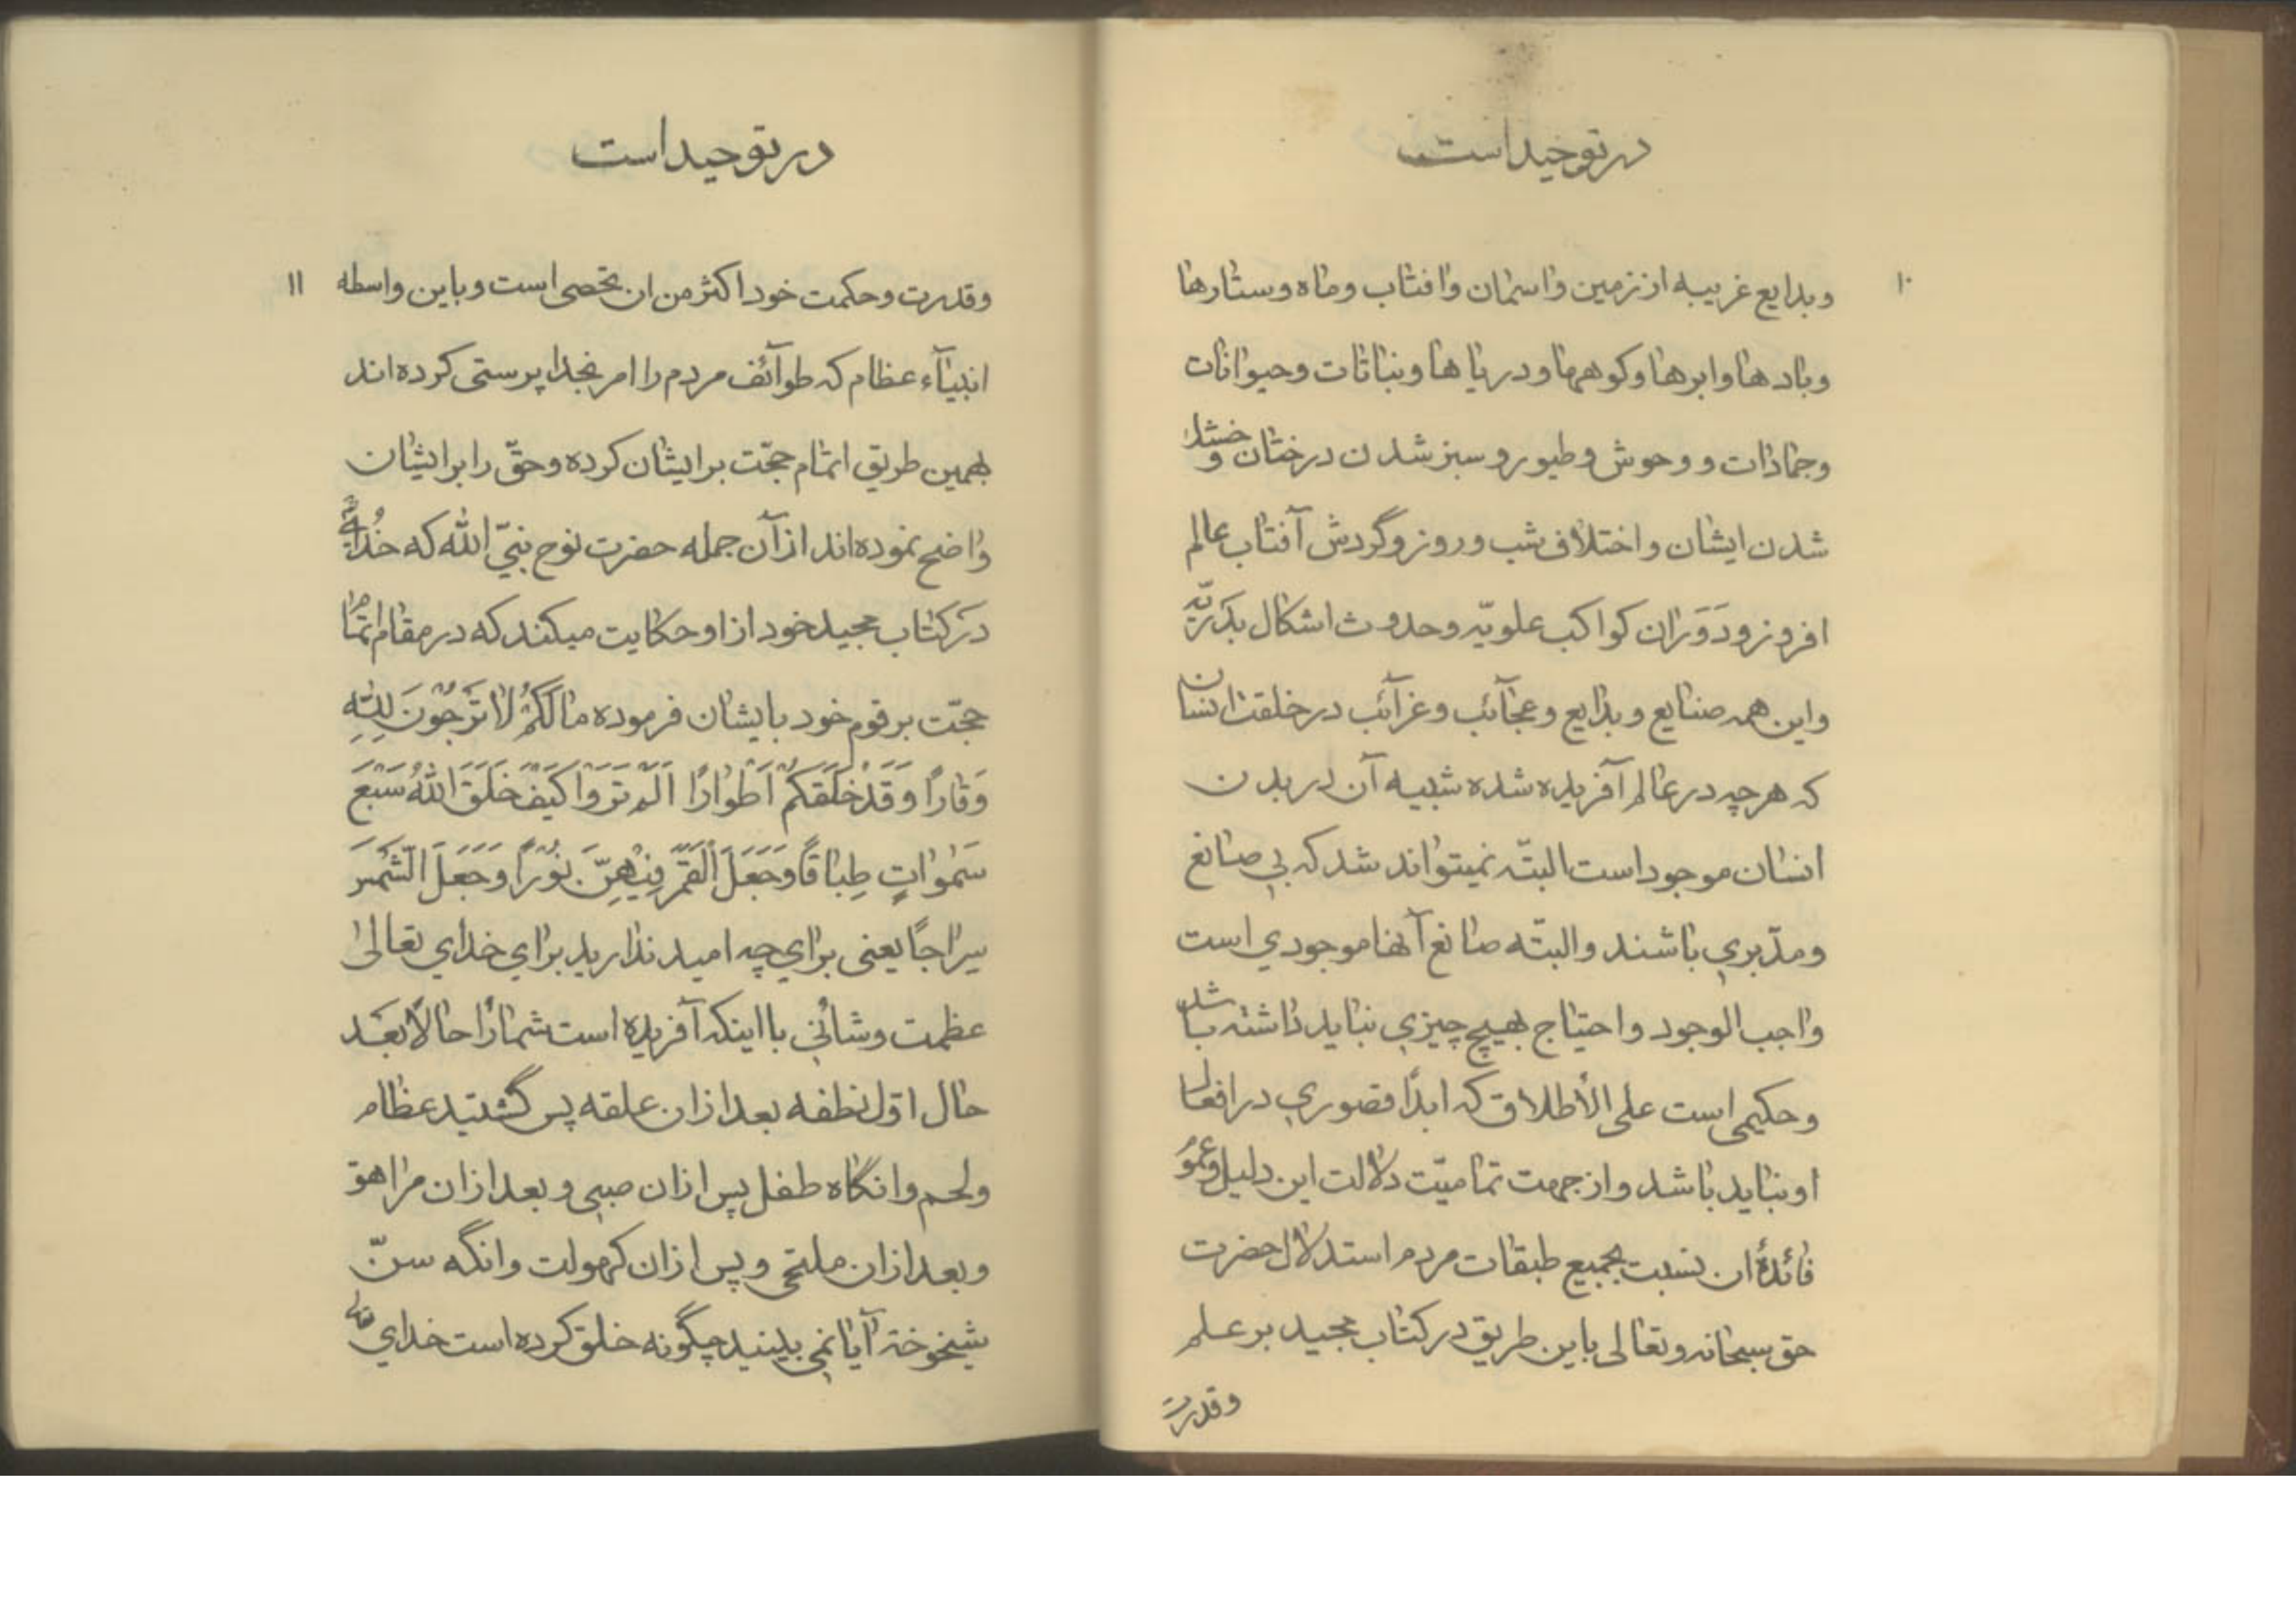 در توحید است
۱۰
و بدایع غریبه از زمین و اسمان و افتاب و ماه و ستارها
و باد ها و ابرها و کوهها و دریا ها و نباتات و حیوانات
و جمادات و وحوش و طیور و سبز شدن درختان و خشک
شدن ایشان و اختلاف شب و روز و گردش آفتاب عالم
افروز و دَوَران کواکب علویّه و حدوث اشکال بدریّه
و این همه صنایع و بدایع و عجآئب و غرآئب در خلقت انسان
که هر چه در عالم آفریده شده شبیه آن در بدن
انسان موجود است البتّه نمیتواند شد که بی صانع
و مدّبری باشند و البتّه صانع آنها موجودی است
واجب الوجود و احتیاج بهیچ چیزی نباید داشته باشد
و حکیمی است علی الأطلاق که ابدًا قصوری در افعال
او نباید باشد و از جهت تمامیّت دلالت این دلیل و عموم
فائدهٔ ان نسبت بجمیع طبقات مردم استدلال حضرت
حق سبحانه و تعالی باین طریق در کتاب مجید بر علم
و قدرت
در توحید است
۱۱
و قدرت و حکمت خود اکثر من ان تحصی است و باین واسطه
انبیآء عظام که طوآئف مردم را امر بخدا پرستی کرده اند
بهمین طریق اتمام حجّت بر ایشان کرده و حقّ را بر ایشان
واضح نموده اند از آن جمله حضرت نوح نبیّ الله که
در کتاب مجید خود از او حکایت میکند که در مقام اتمام
حجّت بر قوم خود بایشان فرموده مالَکُمْ لا تَرْجُوْنَ لِلّٰهِ
وَقارًا وَ قَدْ خَلَقَکُمْ اَطْوارًا اَلَمْ تَرَوْا کَیْفَ خَلَقَ اللهُ سَبْعَ
سَمٰوٰاتٍ طِباقًا وَ جَعَلَ الْقَمَرَ فِیْهِنَّ نُوْرًا وَ جَعَلَ الشَّمْسَ
سِراجًا یعنی برای چه امید ندارید برای خدای تعالیٰ
عظمت و شأنی با اینکه آفریده است شما را حالًا بَعْد
حال اوّل نطفه بعد از ان علقه پس گشتید عظام
و لحم و انگاه طفل پس از ان صبی و بعد از ان مراهق
و بعد از ان ملتحی و پس از ان کهولت و انگه سنّ
شیخوخة آیا نمی بینید چگونه خلق کرده است خدای تعالی